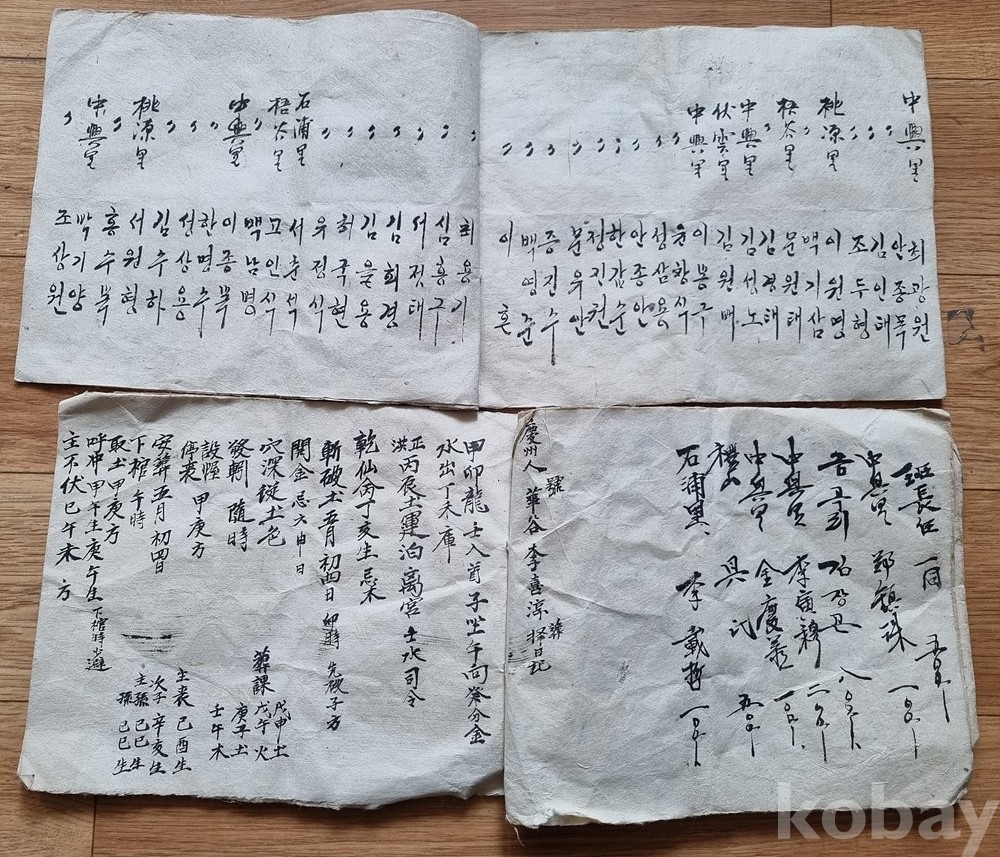 中興里 최광원
안종묵
김인태
조두형
桃源里 이원영
백기삼
梧谷里 문원태
김경태
中興里 김성노
伏雲里 김원배
中興里 이봉구
윤창식
성삼용
안종안
한갑순
천진권
문우안
증진수
백영준
이혼
최용기
심홍구
서정태
김희경
김을용
허국현
우전식
石浦里 서춘석
梧谷里 고인식
백남명
中興里 이종묵
하명수
성상용
김수하
桃源里 서원형
홍수묵
中興里 박기양
조상원
班長任 一同
中興里 鄭鎮珠 一〇〇
금곡리 김장곤 八〇
中興里 李寅錦
中興里 金慶善 一〇〇
具氏 五〇
石浦里 李載哲 一〇〇
慶州人 號華谷 李喜淳 葬擇日記
甲卯龍壬入首子坐午向 分金
水出丁未庫
正丙辰土運泊离宮 土水司令
洪
乾仙命丁亥生忌木
斬破土五月初四日卯時 先破子方
開金忌六申日
穴深從土色
發靷 隨時
設幄 甲庚方
停喪
安葬五月初四日
下棺午時
取土甲庚方
呼冲甲午生庚午生下棺時小避
主不伏巳午未方
葬課
戊申土
戊午火
庚子土
壬午木
主喪己酉生
次子辛亥生
主孫己巳生
孫己巳生